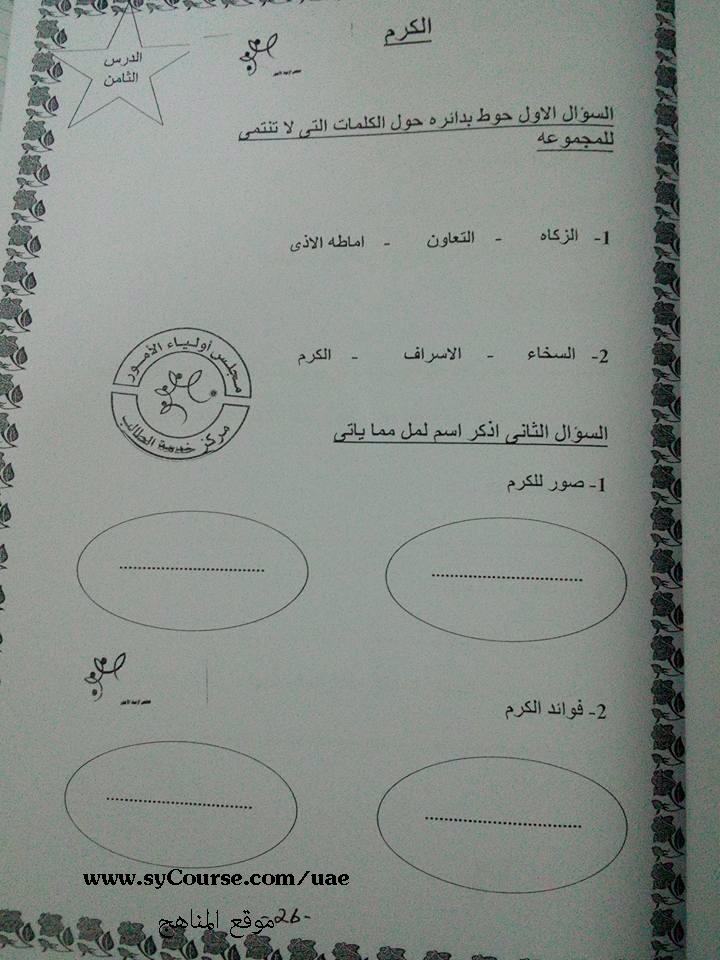 الكرم
الدرس
الثامن
السؤال الاول حوط بدائره حول الكلمات التى لا تنتمى
للمجموعه
1- الزكاه - التعاون - اماطه الاذى
2- السخاء - الاسراف - الكرم
مجلس أولياء الأمور
مركز خدمة الطالب
السؤال الثانى اذكر اسم لمل مما ياتى
1- صور للكرم
2- فوائد الكرم
www.syCourse.com/uae
موقع المناهج
-26-